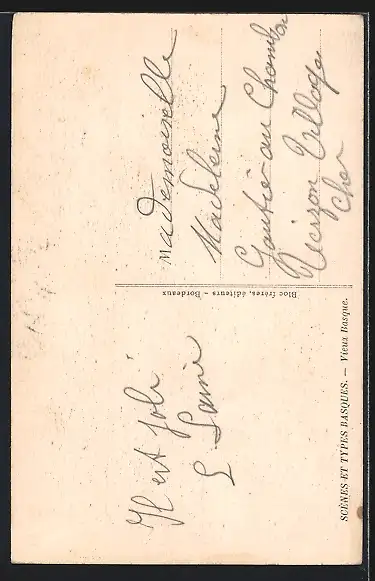 SCÈNES ET TYPES BASQUES. — Vieux Basque.
Il est joli
Bloc frères, éditeurs - Bordeaux
Mademoiselle
Madeleine
Gautier au
Vierzon Village
Cher